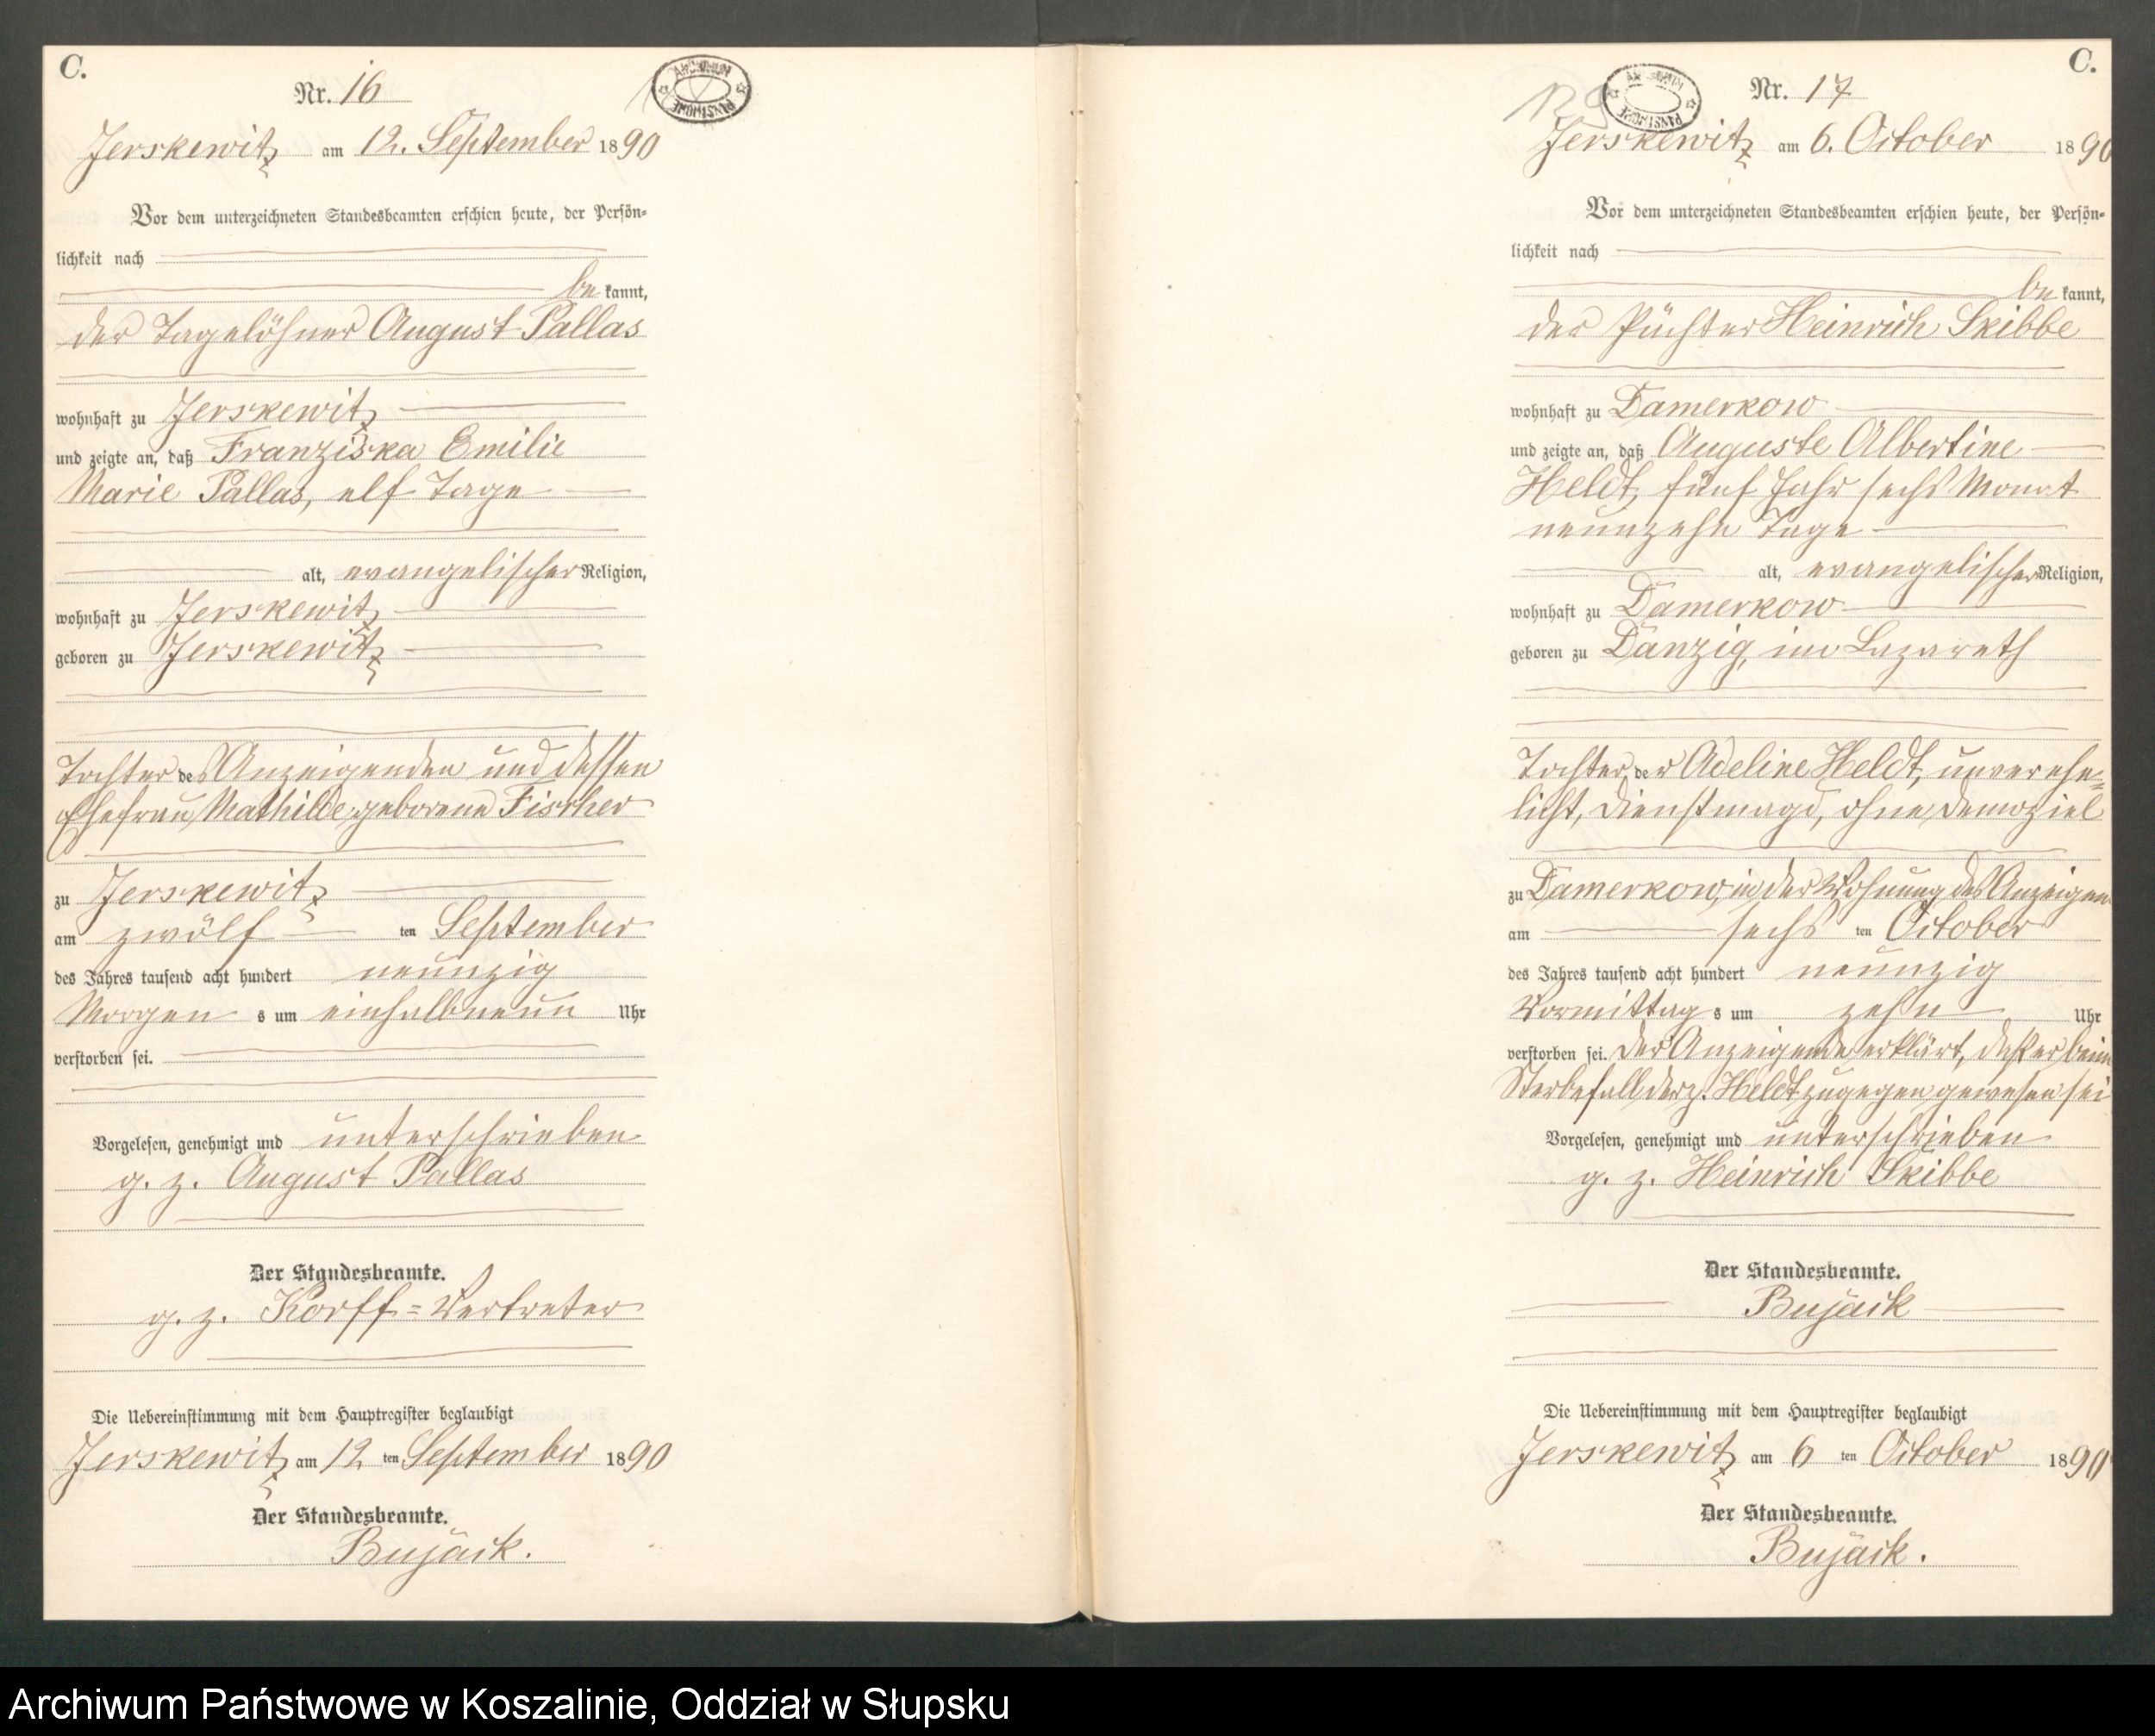 C.
Nr. 16
Jerskewitz am 12. September 1890
Vor dem unterzeichneten Standesbeamten erschien heute, der Persön-
lichkeit nach
be kannt,
der Tagelöhner August Pallas
wohnhaft zu Jerskewitz
und zeigte an, daß Franziska Emilie
Marie Pallas, elf Tage
alt, evangelischer Religion,
wohnhaft zu Jerskewitz
geboren zu Jerskewitz
Tochter des Anzeigenden und dessen
Ehefrau Mathilde geborene Fischer
zu Jerskewitz
am zwölf ten September
des Jahres tausend acht hundert neunzig
Morgen s um einhalbneun Uhr
verstorben sei.
Vorgelesen, genehmigt und unterschrieben
g. z. August Pallas
Der Standesbeamte.
g. z. Korff = Vertreter
Die Uebereinstimmung mit dem Hauptregister beglaubigt
Jerskewitz am 12 ten September 1890
Der Standesbeamte.
Bujack.
C.
Nr. 17
Jerskewitz am 6. October 1890
Vor dem unterzeichneten Standesbeamten erschien heute, der Persön-
lichkeit nach
be kannt,
der Püchter Heinrich Skibbe
wohnhaft zu Damerkow
und zeigte an, daß Auguste Albertine
Heldt, fünf Jahr sechs Monat
neunzehn Tage
alt, evangelischer Religion,
wohnhaft zu Damerkow
geboren zu Danzig, im Lazareth
Tochter der Adeline Heldt, unverehe=
licht, Dienstmagd, ohne Demoziel
zu Damerkow, in der Wohnung des Anzeigen
am sechs ten October
des Jahres tausend acht hundert neunzig
Vormittag s um zehn Uhr
verstorben sei. Der Anzeigende erklärt, daß er beim
Sterbefall der p. Heldt zugegen gewesen sei
Vorgelesen, genehmigt und unterschrieben
g. z. Heinrich Skibbe
Der Standesbeamte.
Bujack
Die Uebereinstimmung mit dem Hauptregister beglaubigt
Jerskewitz am 6 ten October 1890
Der Standesbeamte.
Bujack.
Archiwum Państwowe w Koszalinie, Oddział w Słupsku